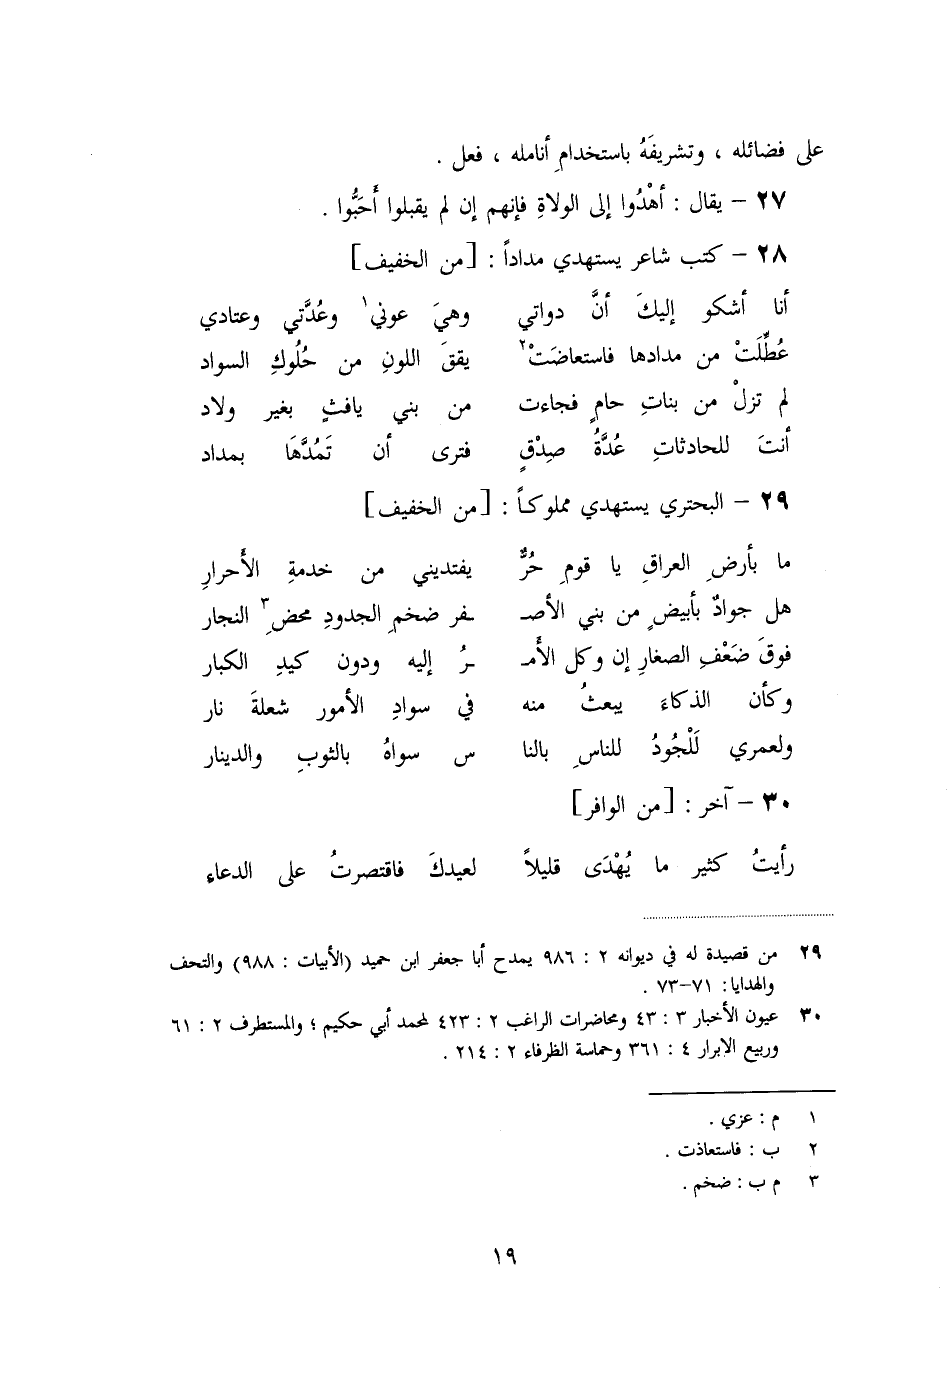 على فضائله ، وتشريفَهُ باستخدامِ أنامله ، فعل .
٢٧ – يقال : أهْدُوا إلى الولاةِ فإنهم إن لم يقبلوا أَحَبُّوا .
٢٨ – كتب شاعر يستهدي مداداً : [من الخفيف]
أنا أشكو إليكَ أنَّ دواتي وهيَ عوني١ وعُدَّتي وعتادي
عُطِّلَتْ من مدادها فاستعاضَتْ٢ يققَ اللونِ من حُلُوكِ السواد
لم تزلْ من بناتِ حامٍ فجاءت من بني يافثٍ بغير ولاد
أنتَ للحادثاتِ عُدَّةُ صِدْقٍ فترى أن تَمُدَّهَا بمداد
٢٩ – البحتري يستهدي مملوكاً : [من الخفيف]
ما بأرضِ العراقِ يا قومِ حُرٌّ يفتديني من خدمةِ الأَحرارِ
هل جوادٌ بأبيضٍ من بني الأصـ ـفر ضخمِ الجدودِ محضِ٣ النجار
فوقَ ضَعْفِ الصغارِ إن وكل الأمـ ـرُ إليه ودون كيدِ الكبار
وكأن الذكاءَ يبعثُ منه في سوادِ الأمور شعلةَ نار
ولعمري لَلْجُودُ للناسِ بالنا س سواهُ بالثوبِ والدينار
٣٠ – آخر : [من الوافر]
رأيتُ كثير ما يُهْدَى قليلاً لعيدكَ فاقتصرتُ على الدعاءِ
٢٩ من قصيدة له في ديوانه ٢ : ٩٨٦ يمدح أبا جعفر ابن حميد (الأبيات : ٩٨٨) والتحف
والهدايا : ٧١–٧٣ .
٣٠ عيون الأخبار ٣ : ٤٣ ومحاضرات الراغب ٢ : ٤٢٣ لمحمد أبي حكيم ؛ والمستطرف ٢ : ٦١
وربيع الابرار ٤ : ٣٦١ وحماسة الظرفاء ٢ : ٢١٤ .
١ م : عزي .
٢ ب : فاستعاذت .
٣ م ب : ضخم .
١٩